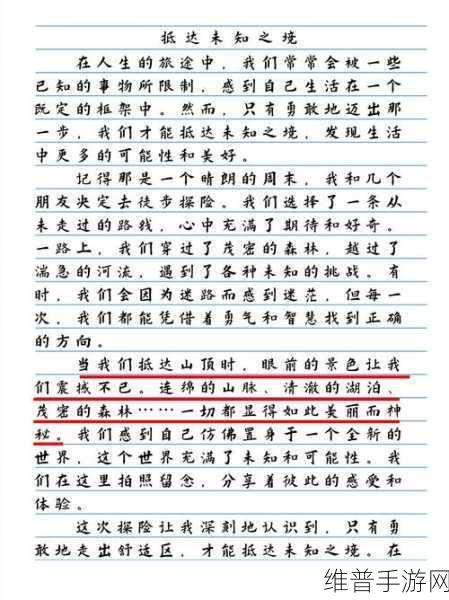 抵达未知之境
在人生的旅途中，我们常常会被一些
已知的事物所限制，感到自己生活在一个
既定的框架中。然而，只有勇敢地迈出那
一步，我们才能抵达未知之境，发现生活
中更多的可能性和美好。
记得那是一个晴朗的周末，我和几个
朋友决定去徒步探险。我们选择了一条从
未走过的路线，心中充满了期待和好奇。
一路上，我们穿过了茂密的森林，越过了
湍急的河流，遇到了各种未知的挑战。有
时，我们会因为迷路而感到迷茫，但每一
次，我们都能凭借着勇气和智慧找到正确
的方向。
当我们抵达山顶时，眼前的景色让我
们震撼不已。连绵的山脉、清澈的湖泊、
茂密的森林……一切都显得如此美丽而神
秘。我们感到自己仿佛置身于一个全新的
世界，这个世界充满了未知和可能性。我
们在这里拍照留念，分享着彼此的感受和
体验。
这次探险让我深刻地认识到，只有勇
敢地走出舒适区，才能抵达未知之境。在
维普手游网